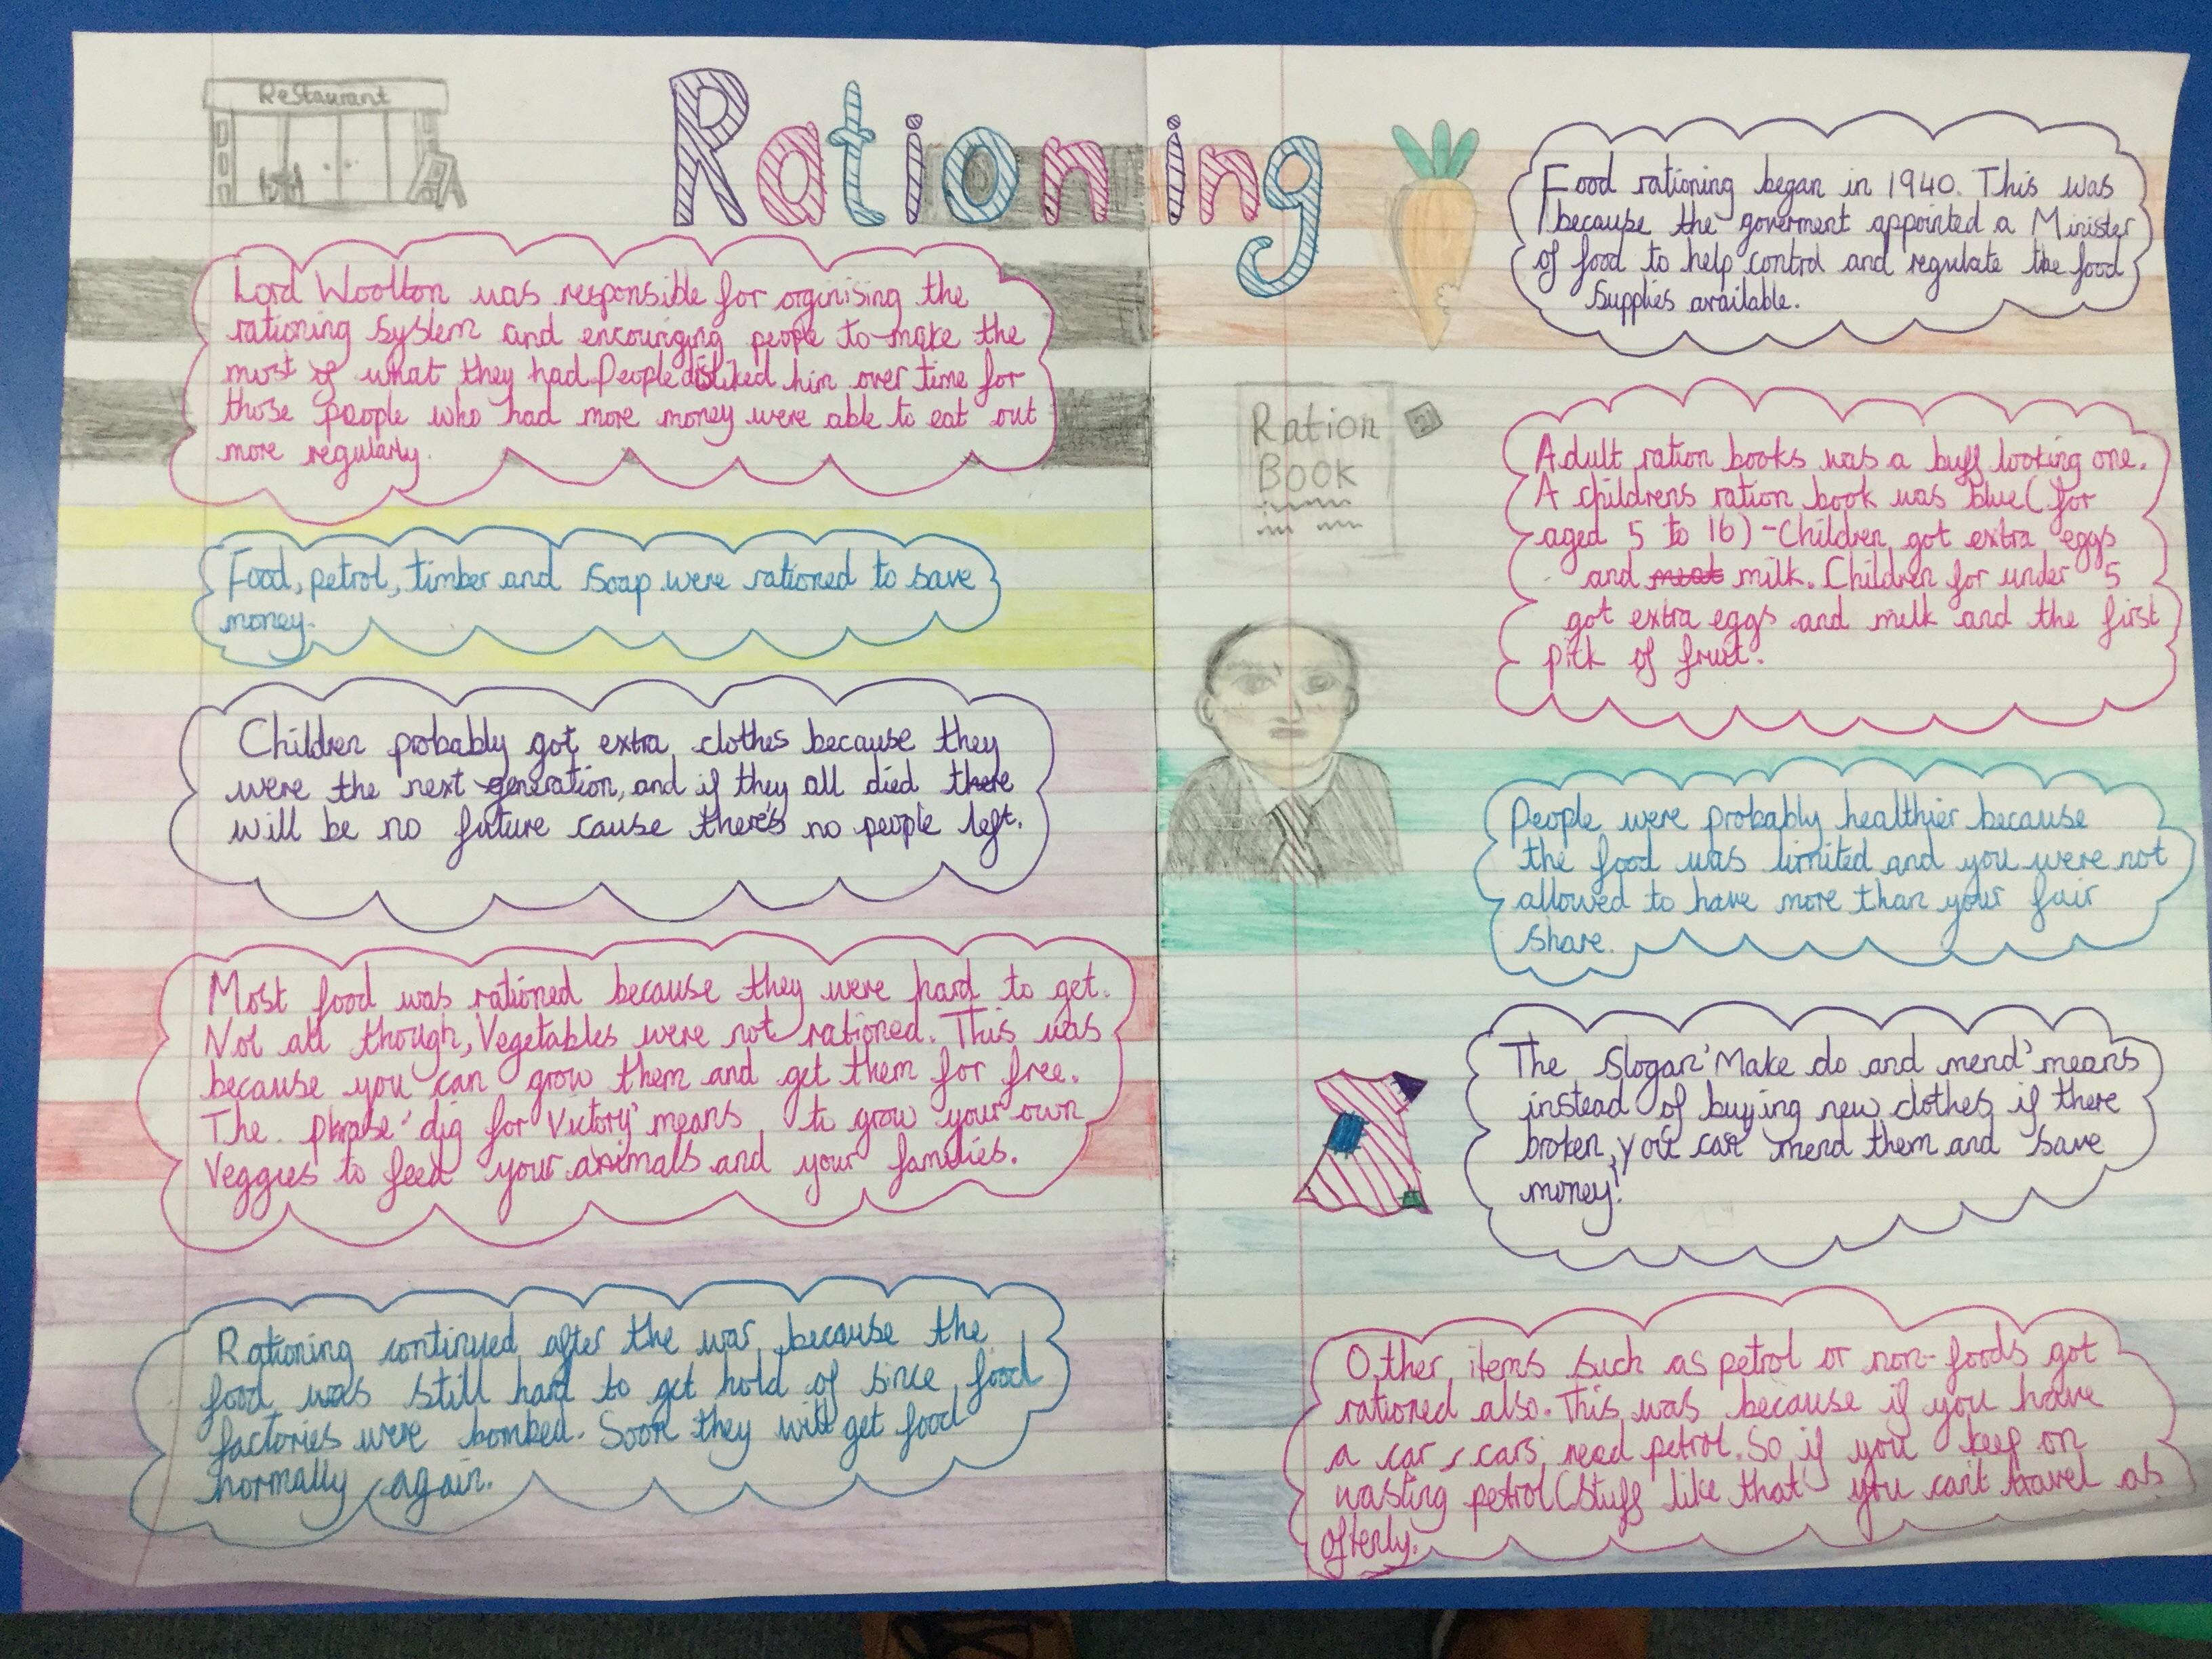 Restaurant
Rationing
Lord Woolton was responsible for orginising the
rationing system and encouraging people to make the
most of what they had. People disliked him over time for
those people who had more money were able to eat out
more regularly.
Food, petrol, timber and soap were rationed to save
money.
Children probably got extra clothes because they
were the next generation, and if they all died there
will be no future cause there's no people left.
Most food was rationed because they were hard to get.
Not all though, Vegetables were not rationed. This was
because you can grow them and get them for free.
The phrase 'dig for Victory' means to grow your own
Veggies to feed your animals and your families.
Rationing continued after the war because the
food was still hard to get hold of since food
factories were bombed. Soon they will get food
normally again.
Food rationing began in 1940. This was
because the goverment appointed a Minister
of food to help control and regulate the food
supplies available.
Ration
Book
Adult ration books was a buff looking one.
A childrens ration book was blue (for
aged 5 to 16) - Children got extra eggs
and meat milk. Children for under 5
got extra eggs and milk and the first
pick of fruit.
People were probably healthier because
the food was limited and you were not
allowed to have more than your fair
share.
The slogan 'Make do and mend' means
instead of buying new clothes, if there
broken, you can mend them and save
money!
Other items such as petrol or non-foods got
rationed also. This was because if you have
a car, cars need petrol. So if you keep on
wasting petrol (stuff like that you can't travel as
oftenly.